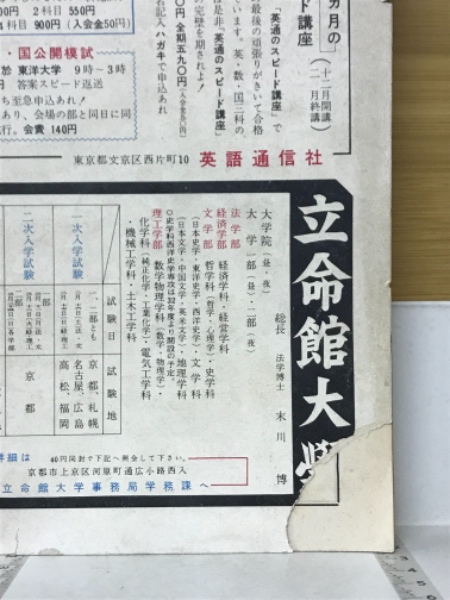 カ月の
講座
(十二月開講
二月終講)
「英語通のスピード講座」で
最後の頑張りがきいて合格
います。英・数・国三科の
は是非「英通のスピード講座」
の完璧を期されよ!
円 全期五九〇円
記入ハガキで申込あれ
2科目 550円
4科目 900円 (入会金50円)
・国公開模試
於 東洋大学 9時〜3時
答案スピード返送
ち至急申込あれ!
あり、会場の部と同日に同
行。会費 140円
東京都文京区西片町10 英語通信社
立命館大学
総長 法学博士 末川 博
大学院(昼・夜)
大学 一部(昼)・二部(夜)
法学部
経済学部 経済学科・経営学科
文学部 哲学科(哲学・心理学)・史学科
(日本史学・東洋史学・西洋史学)・文学科
(日本文学・中国文学・英米文学)・地理学科
○史学科西洋史学専攻は32年度より開設の予定。
理工学部 数学物理学科(数学・物理学)・
化学科(純正化学・工業化学)・電気工学科
・機械工学科・土木工学科
一次入学試験
二次入学試験
試験日
試験地
一・二部とも
京都、札幌
名古屋、広島
高松、福岡
京都
詳細は 40円同封で下記へ照会して下さい。
京都市上京区河原町通広小路西入
立命館大学事務局学務課へ